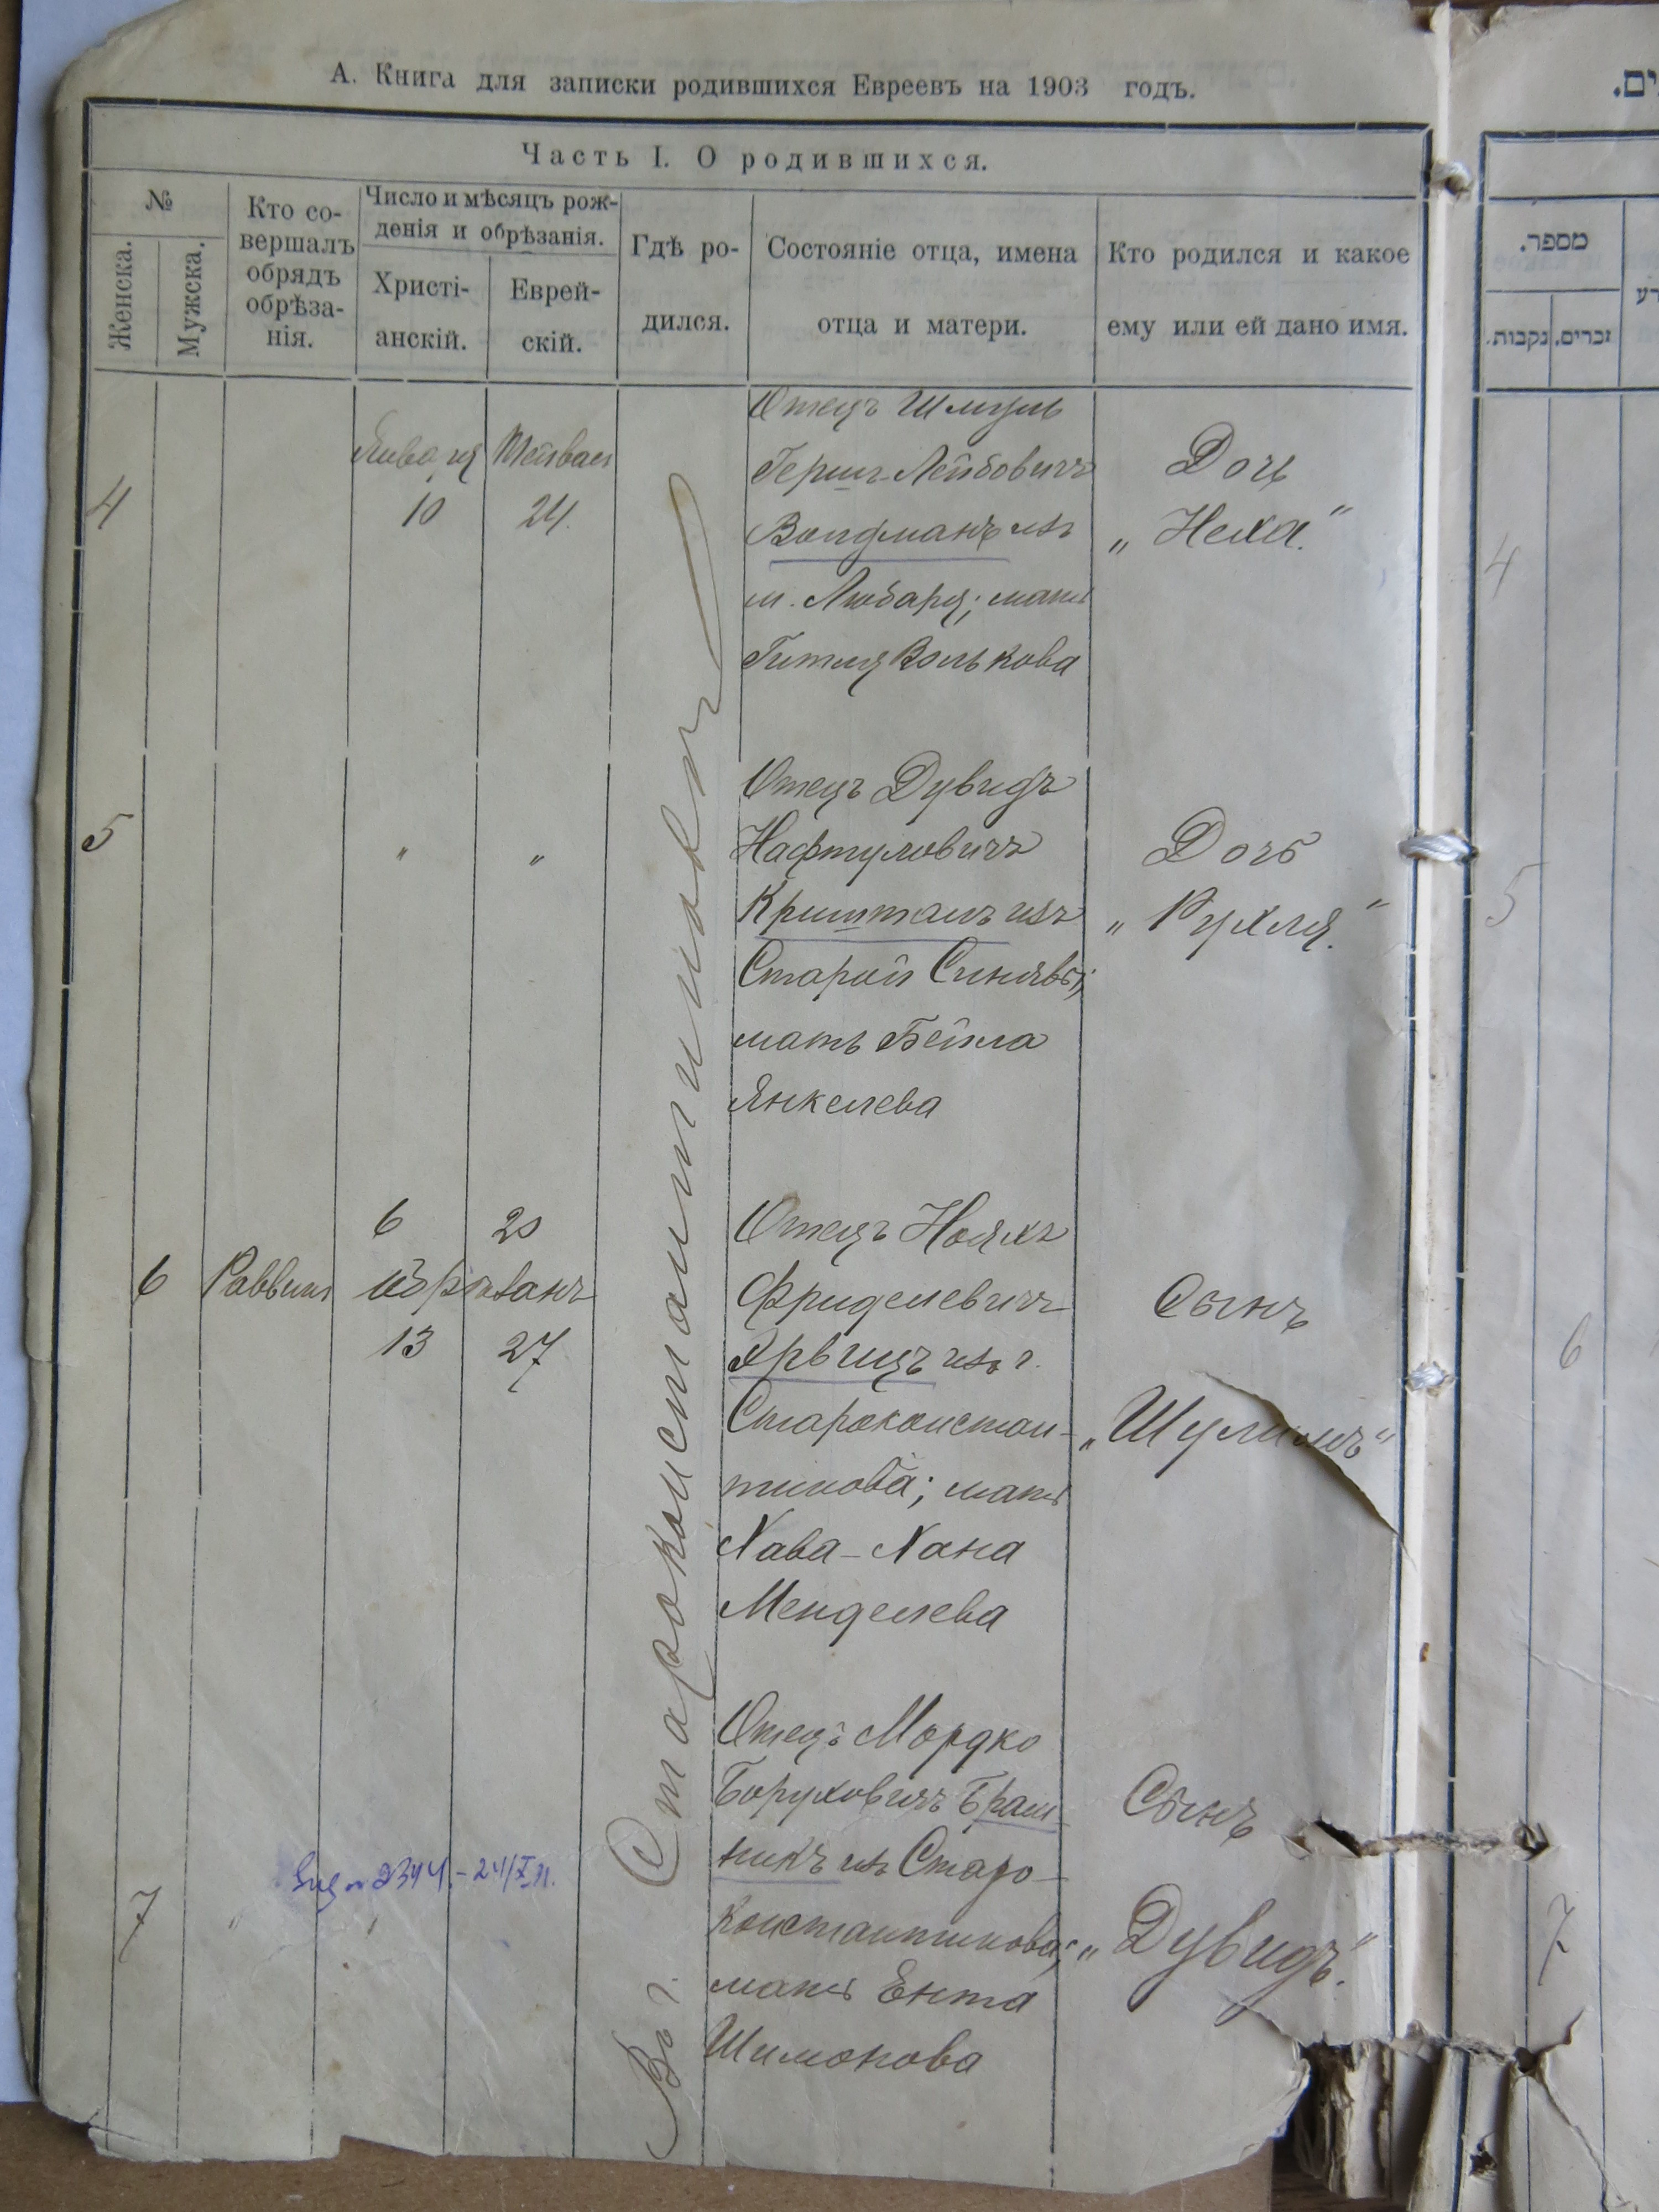 А. Книга для записки родившихся Евреевъ на 1903 годъ.
Часть I. О родившихся.
№
Женска.
Мужска.
Кто со-
вершалъ
обрядъ
обрѣза-
нія.
Число и мѣсяцъ рож-
денія и обрѣзанія.
Христі-
анскій.
Еврей-
скій.
Гдѣ ро-
дился.
Состояніе отца, имена
отца и матери.
Кто родился и какое
ему или ей дано имя.
Въ г. Староконстантиновѣ
4
Января
10
24.
Отецъ Шмуль
Гершъ-Лейбовичъ
изъ
м. Любара; мать
Гитля Волькова
Дочь
„Неха."
5
"
"
Отецъ Дувидъ
Нафтуловичъ
Кришталъ изъ
Старой Синявы;
мать Бейла
Янкелева
Дочь
„Рухля."
6
Раввинъ
6
20
обрѣзанъ
13
27
Отецъ Нояхъ
Фриделевичъ
изъ г.
Староконстан-
тинова; мать
Хава-Хана
Менделева
Сынъ
„Шулимъ"
7
"
"
2344 - 24/X
Отецъ Мордко
Боруховичъ Браш-
никъ изъ Старо-
константинова;
мать Ента
Шимонова
Сынъ
„Дувидъ."
ים.
מספר.
זכרים.
נקבות.
4
5
6
7